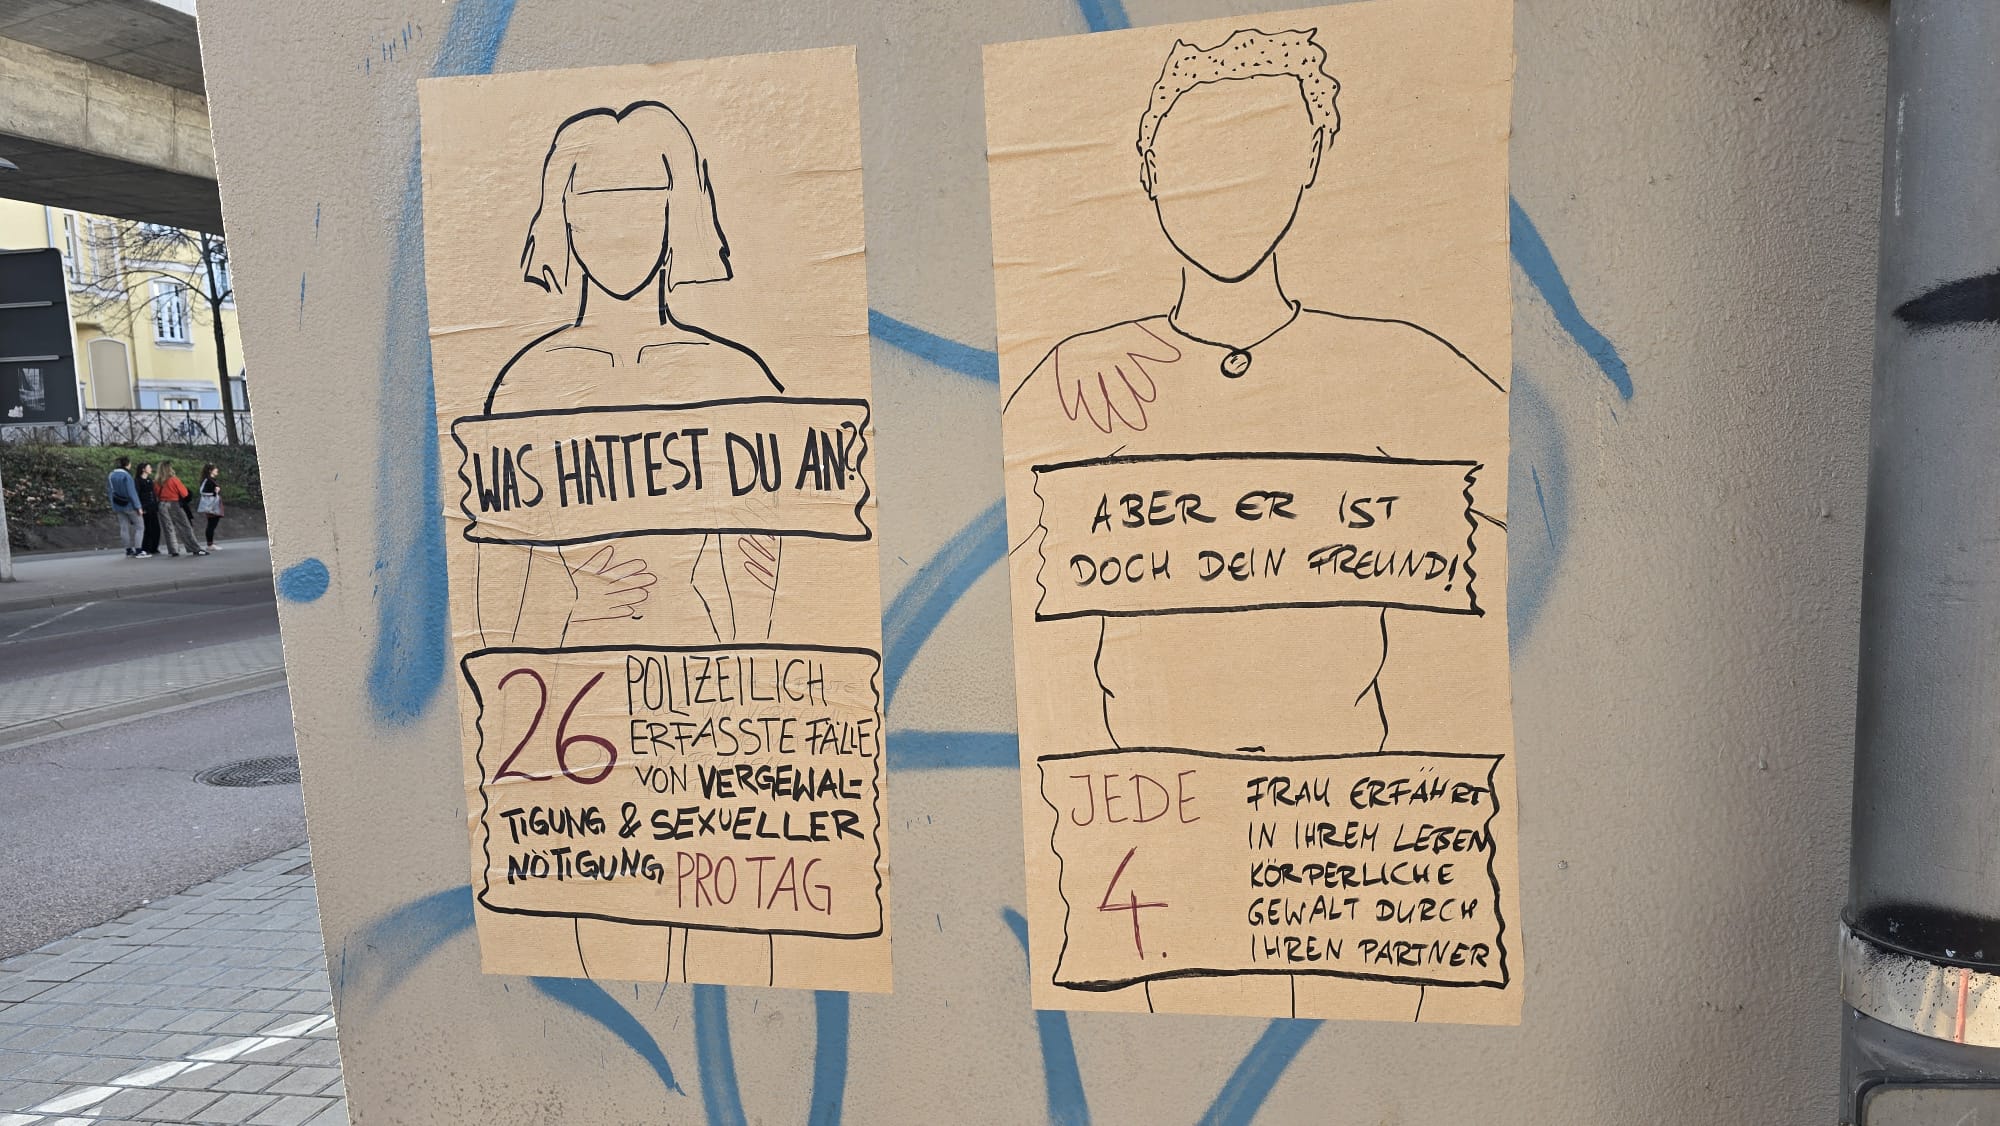 WAS HATTEST DU AN?
26 POLIZEILICH
ERFASSTE FÄLLE
VON VERGEWAL-
TIGUNG & SEXUELLER
NÖTIGUNG PRO TAG
ABER ER IST
DOCH DEIN FREUND!
JEDE
4.
FRAU ERFÄHRT
IN IHREM LEBEN
KÖRPERLICHE
GEWALT DURCH
IHREN PARTNER